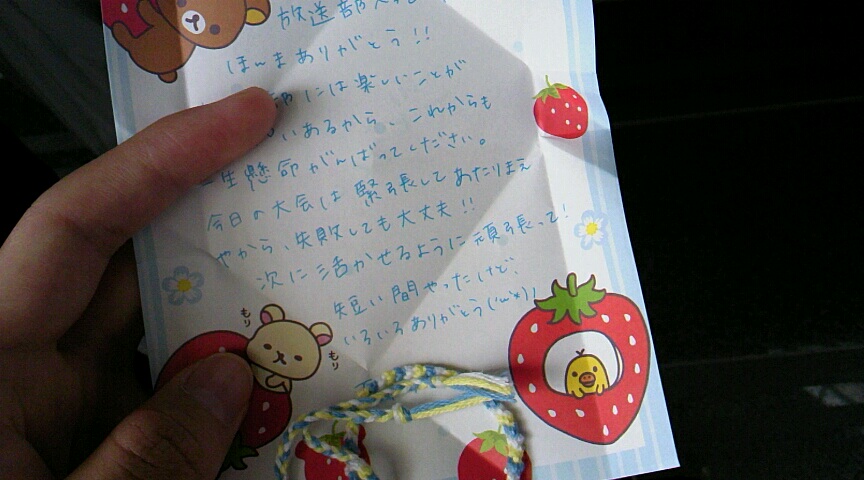 放送部
ほんまありがとう!!
部には楽しいことが
いあるから、これからも
一生懸命がんばってください。
今日の大会は緊張してあたりまえ
やから、失敗しても大丈夫!!
次に活かせるように頑張って!
短い間やったけど、
いろいろありがとう(*^^*)
もり
もり